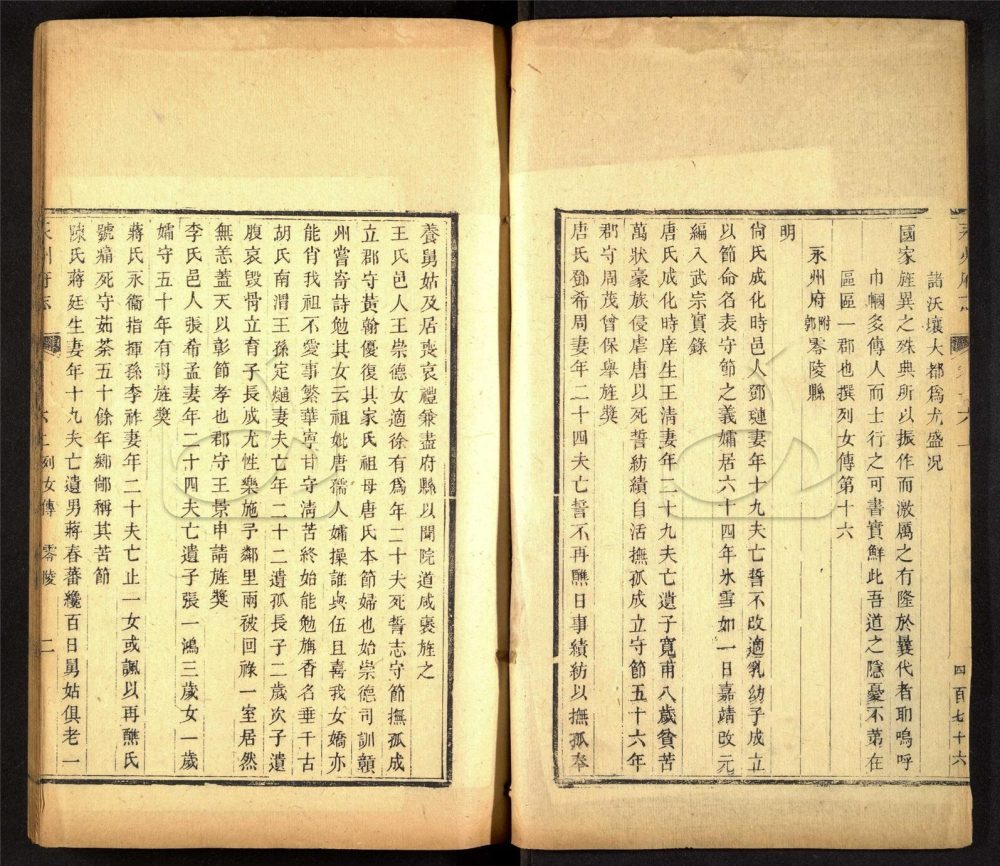 諸沃壤大都爲尤盛况
國家旌異之殊典所以振作而激厲之有隆於曩代者耶嗚呼
巾幗多傳人而士行之可書實鮮此吾道之隱憂不第在
區區一郡也撰列女傳第十六
永州府附郭零陵縣
明
尙氏成化時邑人鄧璉妻年十九夫亡誓不改適乳幼子成立
以節命名表守節之義孀居六十四年氷雪如一日嘉靖改元
編入武宗實錄
唐氏成化時庠生王清妻年二十九夫亡遺子寬甫八歲貧苦
萬狀豪族侵虐唐以死誓紡績自活撫孤成立守節五十六年
郡守周茂曾保舉旌獎
唐氏鄧希周妻年二十四夫亡誓不再醮日事績紡以撫孤奉
四百七十六
養舅姑及居喪哀禮兼盡府縣以聞院道咸褒旌之
王氏邑人王崇德女適徐有爲年二十夫死誓志守節撫孤成
立郡守黃翰優復其家氏祖母唐氏本節婦也始崇德司訓贛
州嘗寄詩勉其女云祖妣唐孺人孀操誰與伍且喜我女嬌亦
能肖我祖不愛事繁華寧甘守清苦終始能勉旃香名垂千古
胡氏南渭王孫定煺妻夫亡年二十二遺孤長子二歲次子遺
腹哀毀骨立育子長成尤性樂施予鄰里兩被回祿一室居然
無恙蓋天以彰節孝也郡守王景申請旌獎
李氏邑人張希孟妻年二十四夫亡遺子張一鴻三歲女一歲
孀守五十年有司旌獎
蔣氏永衞指揮孫李祚妻年二十夫亡止一女或諷以再醮氏
號痛死守茹荼五十餘年鄉鄰稱其苦節
陳氏蔣廷生妻年十九夫亡遺男蔣春蕃纔百日舅姑俱老一
永州府志 六上列女傳 零陵 二